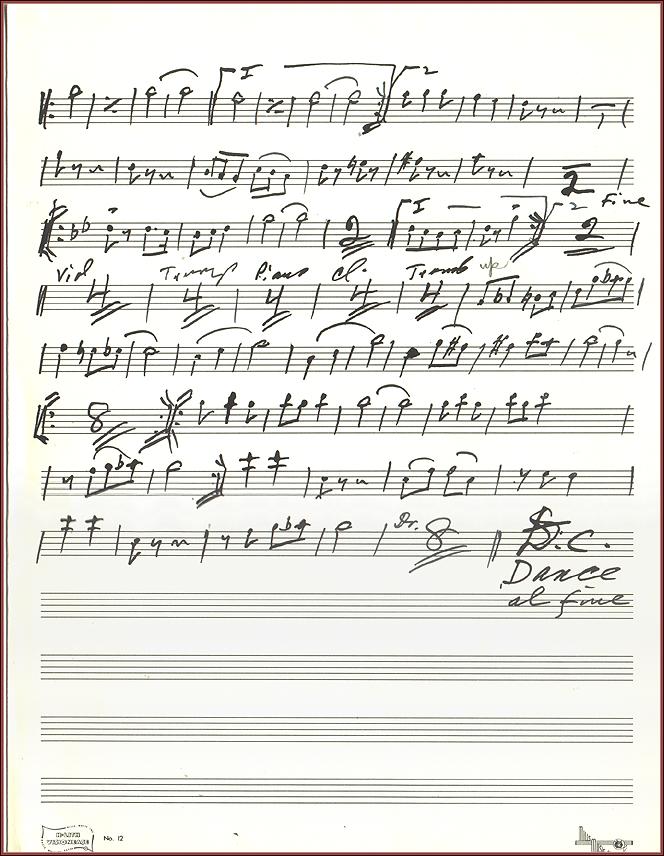 I 2
2
I 2 Fine
2 2
Viol Tromp Piano Cl. Tromb up
4 4 4 4 4
8
Dr. 8 D.C.
Dance
al fine
No. 12